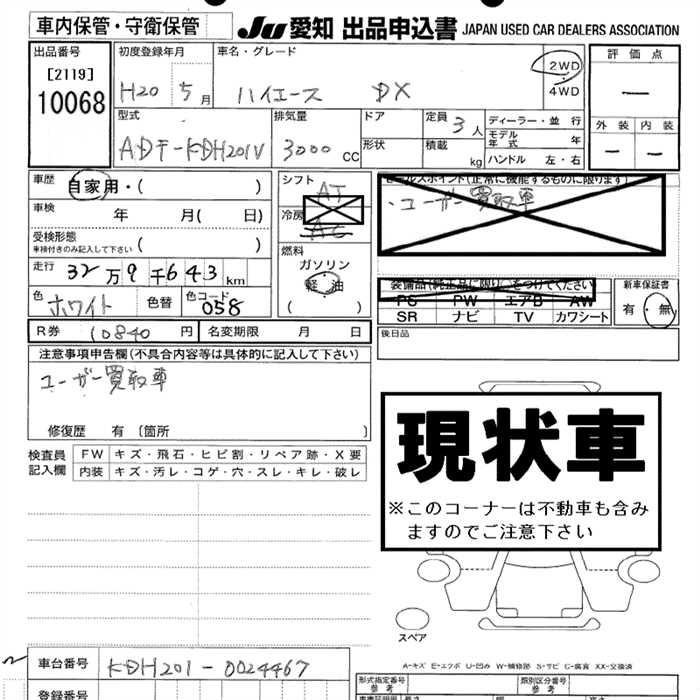 車内保管・守衛保管 JU 愛知 出品申込書 JAPAN USED CAR DEALERS ASSOCIATION
出品番号
[2119]
10068
初度登録年月
H20 5月
車名・グレード
ハイエース DX
2WD
4WD
評価点
—
外装 内装
— —
型式
ADF-KDH201V
排気量
3000 CC
ドア
形状
定員 3人
積載 kg
ディーラー・並行
モデル年式 年
ハンドル 左・右
車歴
自家用・( )
車検 年 月( 日)
受検形態
車検付きのみ記入して下さい ( )
走行 32万9千643km
色 ホワイト 色替 色コード 058
R券 10840円 名変期限 月 日
シフト AT
冷房 AC
燃料
ガソリン
軽油
( )
セールスポイント(正常に機能するものに限ります)
・ユーザー買取車
装備品(純正品に限り)○をつけてください
PS PW エアB AW
SR ナビ TV カワシート
新車保証書
有・無
後日品
注意事項申告欄(不具合内容等は具体的に記入して下さい)
ユーザー買取車
修復歴 有 〔箇所 〕
検査員記入欄
FW キズ・飛石・ヒビ割・リペア跡・X要
内装 キズ・汚レ・コゲ・穴・スレ・キレ・破レ
現状車
※このコーナーは不動車も含み
ますのでご注意下さい
スペア
A-キズ E-エクボ U-凹み W-補修跡 S-サビ C-腐食 XX-交換済
車台番号 KDH201-0024467
登録番号
形式指定番号
参考
類別区分番号
参考